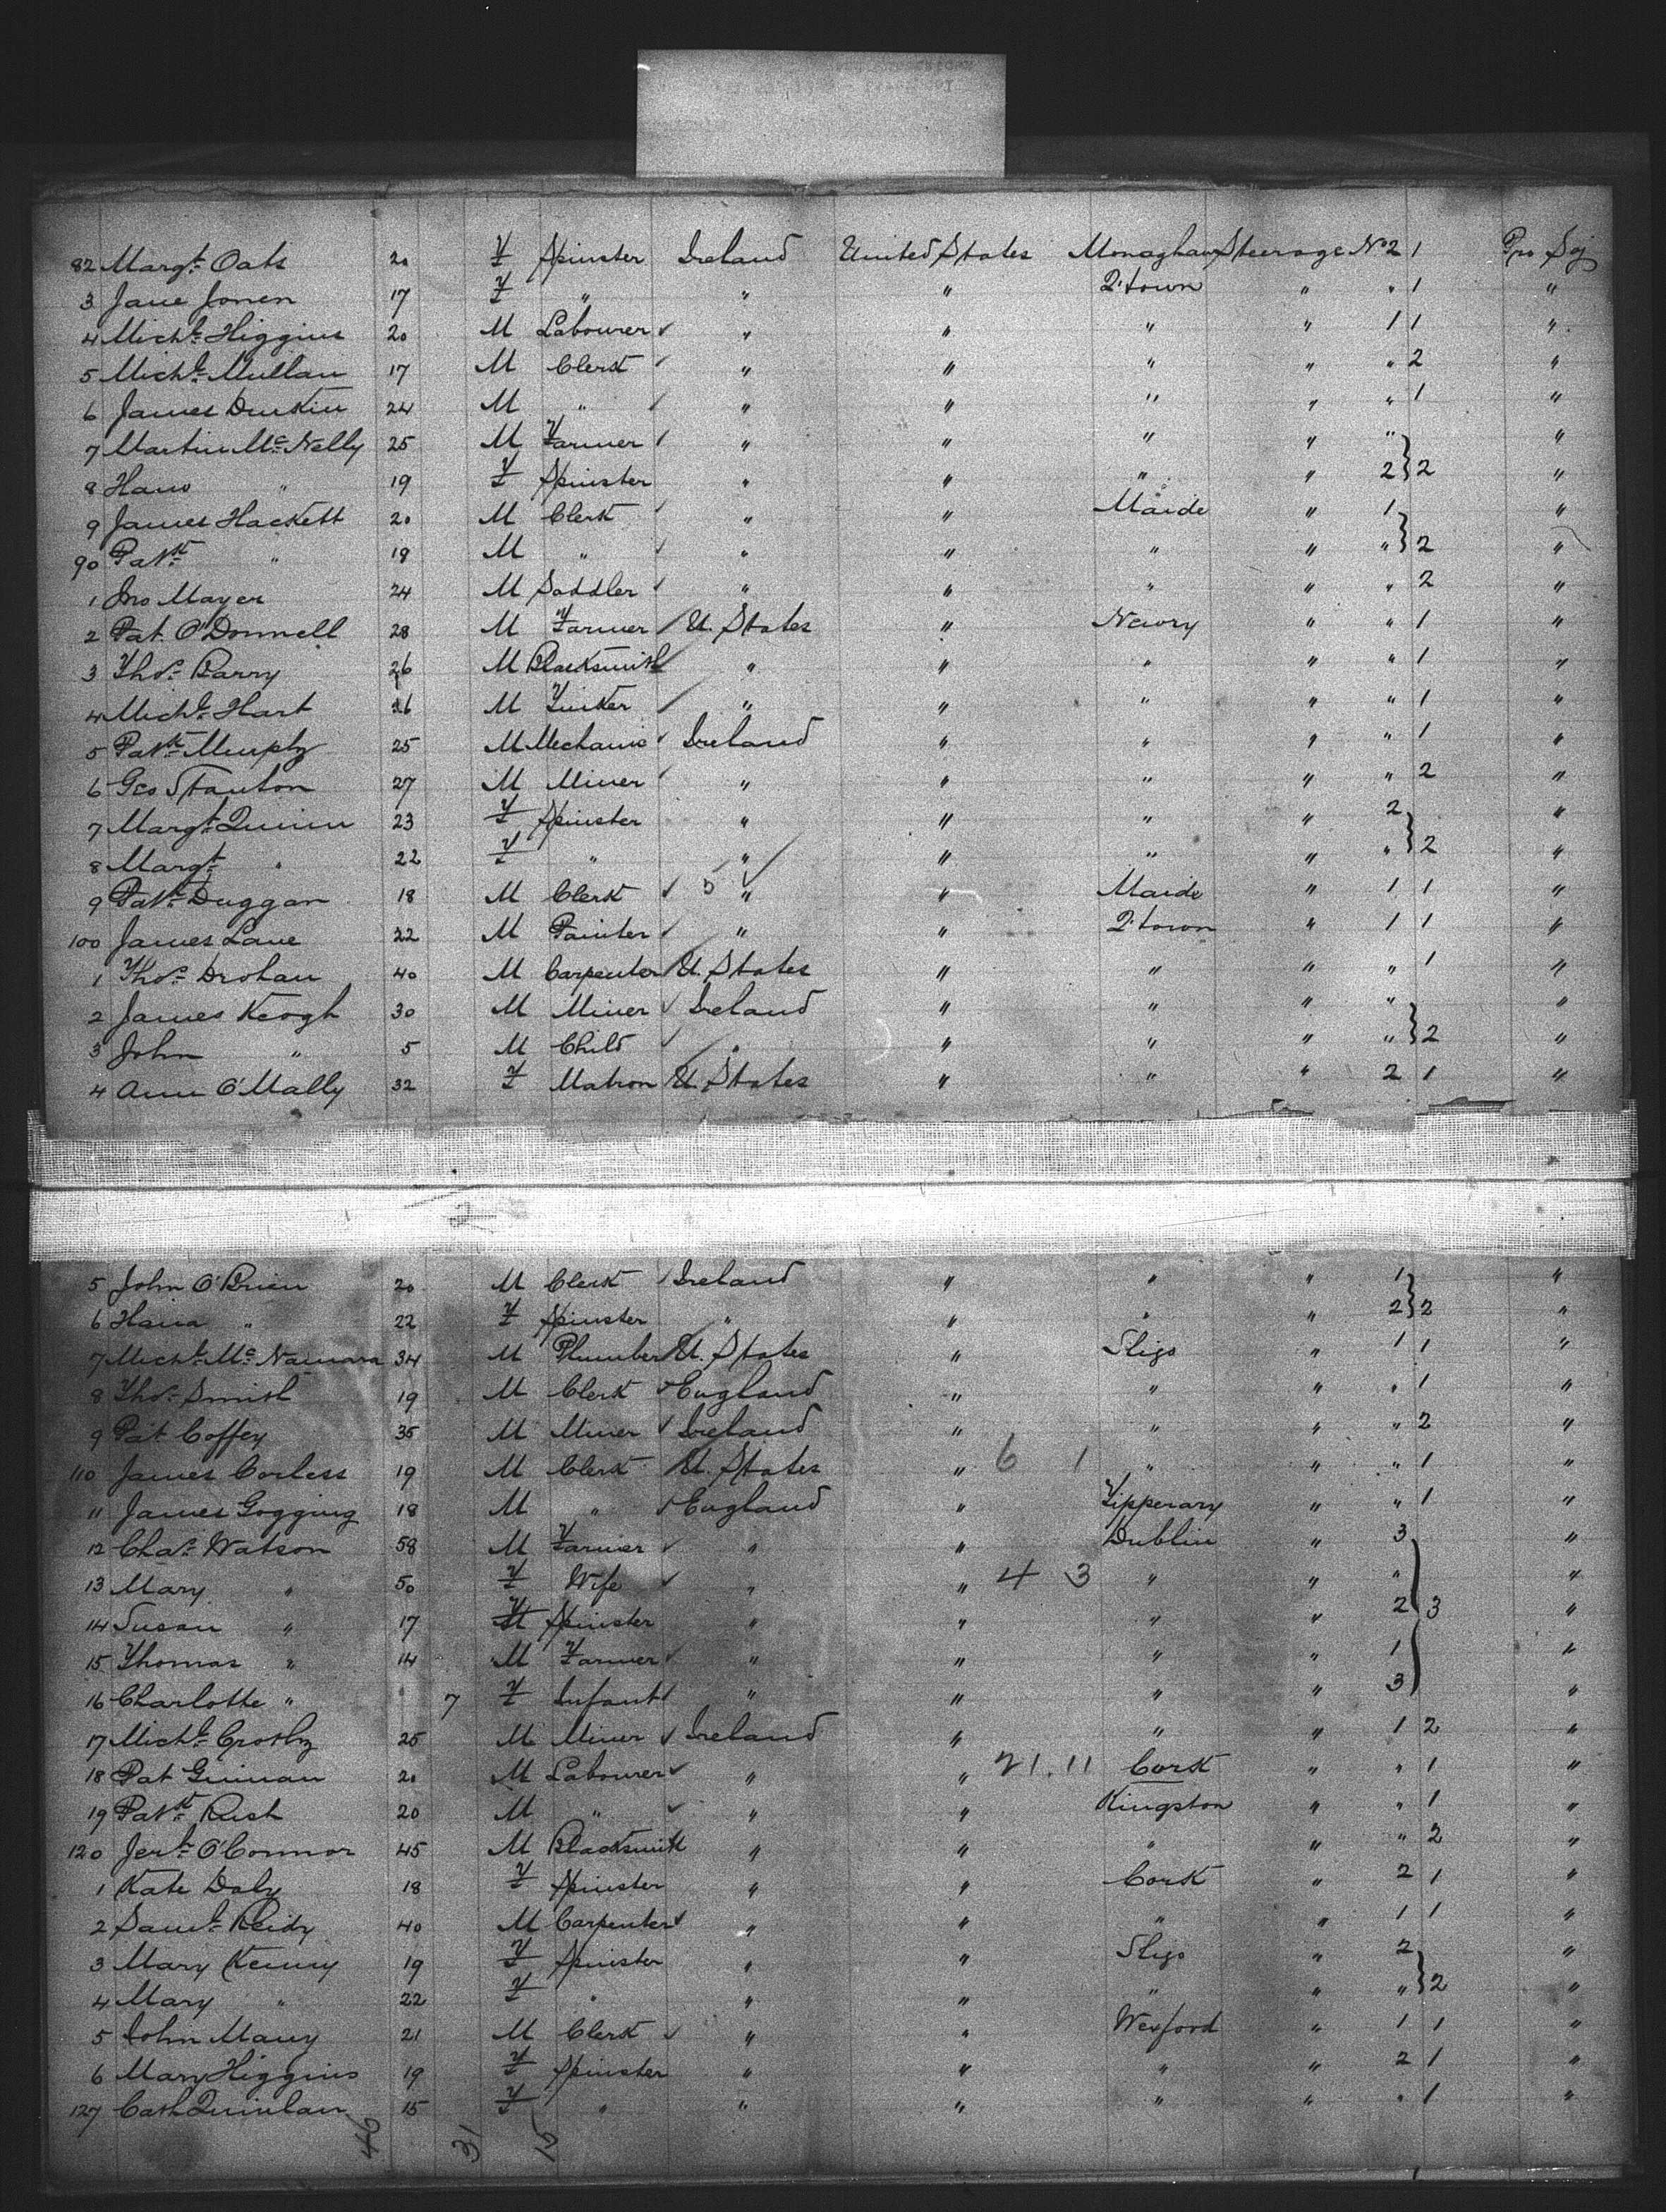 82 Margt Oats 20 F Spinster Ireland United States Monaghan Steerage No 2 1 Pro Soj
3 Jane Jonen 17 F " " " Q'town " " 1 "
4 Michl Higgins 20 M Labourer " " " " 1 1 "
5 Michl Mullan 17 M Clerk " " " " " 2 "
6 James Durkin 24 M " " " " " " 1 "
7 Martin McNelly 25 M Farmer " " " " " "
8 " 19 F Spinster " " " " 2 2 "
9 James Hackett 20 M Clerk " " Maide " 1 "
90 Patk " 18 M " " " " " " 2 "
1 Jno Mayer 24 M Saddler " " " " " 2 "
2 Pat O'Donnell 28 M Farmer U. States " Newry " " 1 "
3 Thos Barry 26 M Blacksmith " " " " " 1 "
4 Michl Hart 26 M Tinker " " " " " 1 "
5 Patk Murphy 25 M Mechanic Ireland " " " " 1 "
6 Geo Stanton 27 M Miner " " " " " 2 "
7 Margt Quinn 23 F Spinster " " " " 2 "
8 Margt " 22 F " " " " " " 2 "
9 Patk Duggan 18 M Clerk 5 " " Maide " 1 1 "
100 James Lane 22 M Painter " " Q'town " 1 1 "
1 Thos Drohan 40 M Carpenter U. States " " " " 1 "
2 James Keogh 30 M Miner Ireland " " " " "
3 John " 5 M Child " " " " " 2 "
4 Ann O'Mally 32 F Matron U. States " " " 2 1 "
5 John O'Brien 20 M Clerk Ireland " " " 1 "
6 Hana " 22 F Spinster " " " " 2 2 "
7 Michl McNamara 34 M Plumber U. States " Sligo " 1 1 "
8 Thos Smith 19 M Clerk England " " " " 1 "
9 Pat Coffey 35 M Miner Ireland " " " " 2 "
110 James Corless 19 M Clerk U. States " 6 1 " " " 1 "
11 James Gogging 18 M " England " Tipperary " " 1 "
12 Chas Watson 58 M Farmer " " Dublin " 3 "
13 Mary " 50 F Wife " " 4 3 " " " "
14 Susan " 17 F Spinster " " " " 2 3 "
15 Thomas " 14 M Farmer " " " " 1 "
16 Charlotte " 7 F Infant " " " " 3 "
17 Michl Crosby 25 M Miner Ireland " " " 1 2 "
18 Pat 20 M Labourer " " 21.11 Cork " " 1 "
19 Patk Rush 20 M " " " Kingston " " 1 "
120 Jerh O'Connor 45 M Blacksmith " " " " " 2 "
1 Kate Daly 18 F Spinster " " Cork " 2 1 "
2 Saml Reidy 40 M Carpenter " " " " 1 1 "
3 Mary Kenny 19 F Spinster " " Sligo " 2 "
4 Mary " 22 F " " " " " " 2 "
5 John Many 21 M Clerk " " Wexford " 1 1 "
6 Mary Higgins 19 F Spinster " " " " 2 1 "
127 Cath Quinlan 15 F " " " " " " 1 "
46 31 15